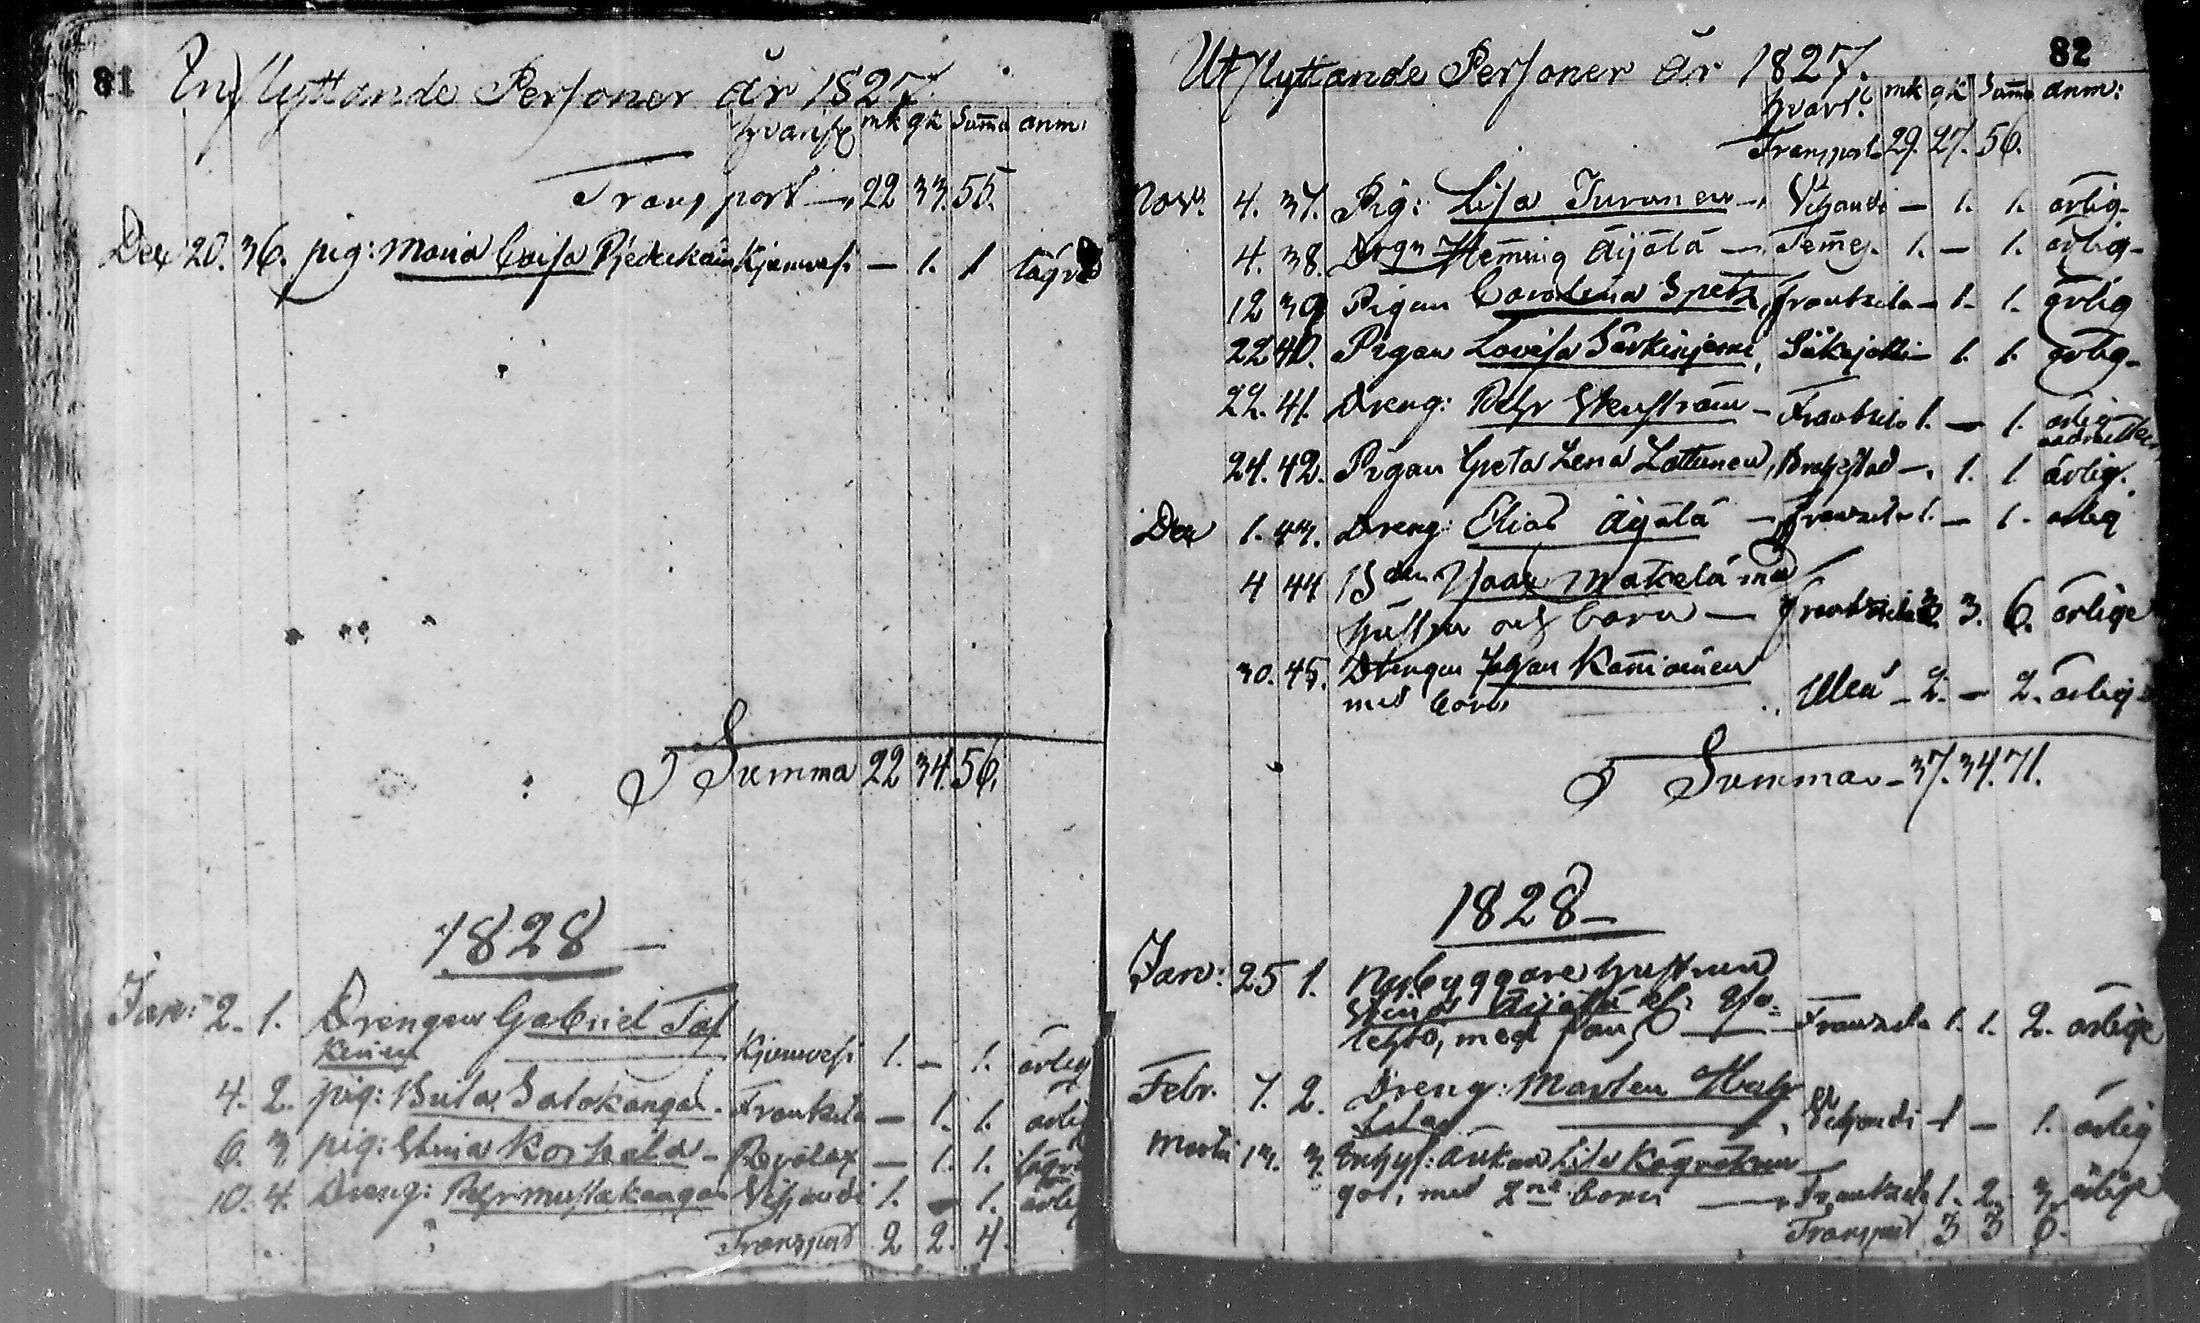 81
Inflyttande Personer år 1827.
mk qk Summa anm:
Transport 22 33. 55.
Dec 20. 36. pig: Maria Caisa — 1. 1
I Summa 22 34. 56.
1828 —
Janr: 2. 1. Drengen Gabriel Tas
kinen 1. — 1. ärlig
4. 2. pig: Brita Salokangas. Frantsila — 1. 1. ärlig
6. 3. pig: Stina Korkala — Revolax — 1. 1.
10. 4. Dreng: Pehr Mustakangas Vihandi 1. — 1. ärlig
Transport 2 2. 4.
82
Utflyttande Personer år 1827.
hvart: mk qk Summa anm:
Transport 29. 27. 56.
Nov. 4. 37. Pig: Lisa Turunen — Vihandi — 1. 1. ärlig
4. 38. Drgn Hemming Äijälä — Temmes. 1. — 1. ärlig
12 39 Pigan Carolina Spets, Frantsila — 1. 1. ärlig
22 40. Pigan Lovisa Särkinjemi, Siikajokki — 1. 1. ärlig
22. 41. Dreng: Pehr Stenström — Frantsila 1. — 1. ärlig
24. 42. Pigan Greta Lena Lattunen, Brahestad — 1. 1 ärlig.
Dec 1. 43. Dreng: Elias Äijälä — Frantsila 1. — 1. ärlig
4 44 Bden Isaac Mäkelä med
hustru och barn — Frantsila 3. 3. 6. ärlige
30. 45. Drengen Johan
med barn Uleå — 2. — 2. ärlig
I Summa — 37. 34. 71.
1828 —
Janr: 25 1. Nybyggare hustrun
Stina Äijälä
med son — Frantsila 1. 1. 2. ärlige
Febr. 7. 2. Dreng: Mårten
Vihandi 1 — 1. ärlig
Martii 13. 3. Enkan Lisa
med 2ne barn — Frantsila 1. 2. 3. ärlige
Transport 3 3 6.